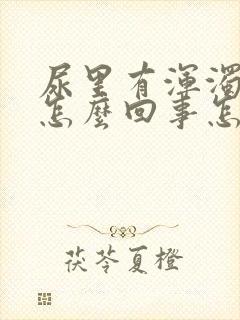 尿里有渾濁
怎麼回事怎
茯苓夏橙